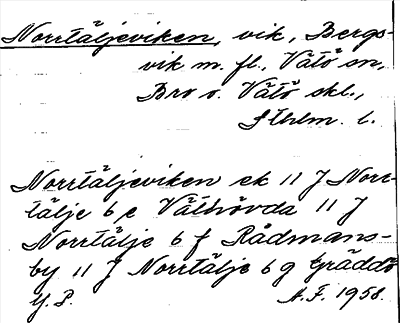 Norrtäljeviken, vik, Bergs-
vik m. fl., Vätö sn,
Bro o. Vätö skl.,
Sthlm. l.
Norrtäljeviken ek 11 J Norr-
tälje 6 e Väthövda 11 J
Norrtälje 6 f Rådmans-
by 11 J Norrtälje 6 g Gräddö
Y. P. A. F. 1958.